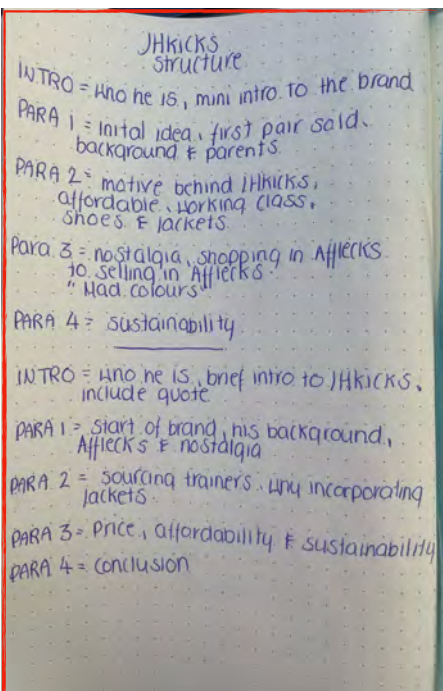 JHKICKS
structure
INTRO = who he is, mini intro to the brand
PARA 1 = inital idea, first pair sold.
background & parents
PARA 2 = motive behind JHKICKS,
affordable, working class,
shoes & jackets
Para 3 = nostalgia, shopping in Afflecks
to selling in Afflecks.
"Mad colours"
PARA 4 = sustainability
INTRO = who he is, brief intro to JHKICKS,
include quote
PARA 1 = start of brand, his background,
Afflecks & nostalgia
PARA 2 = sourcing trainers. why incorporating
jackets.
PARA 3 = Price, affordability & sustainability
PARA 4 = conclusion